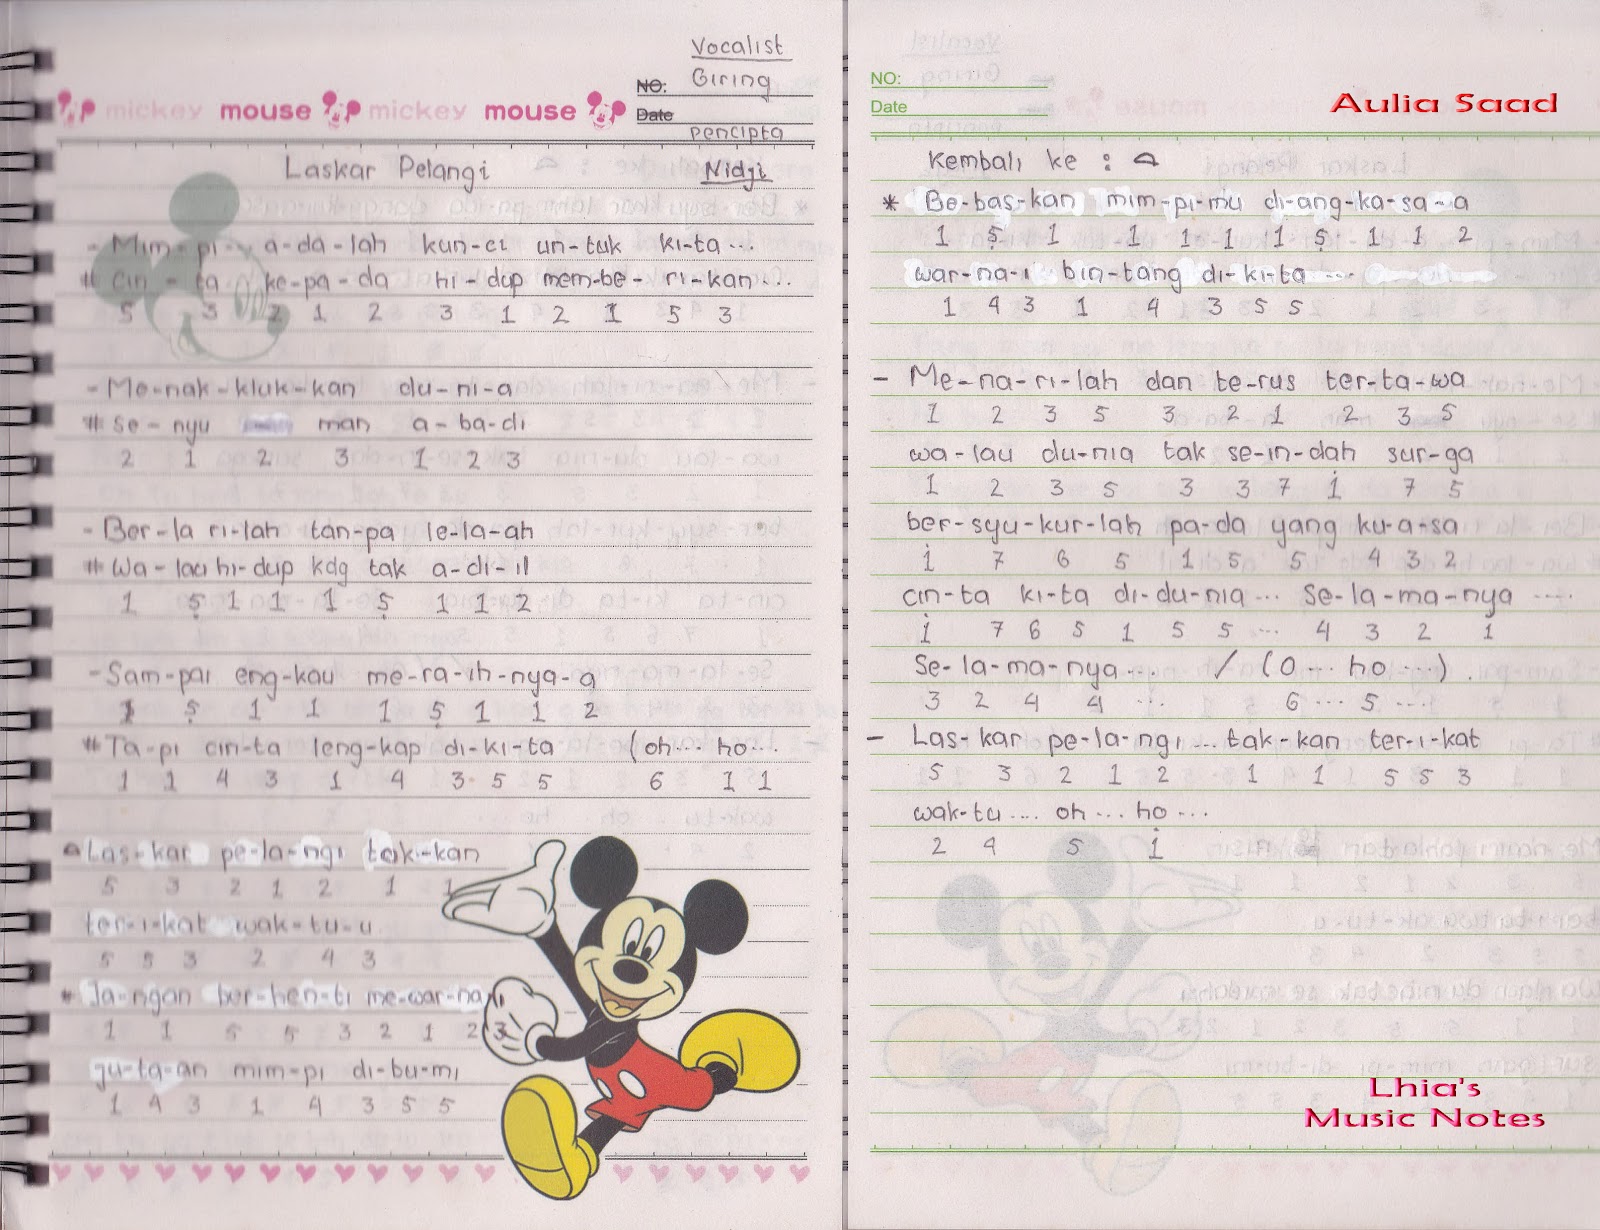 Vocalist
NO: Giring
mickey mouse mickey mouse
Date
Pencipta
Laskar Pelangi Nidji
- Mim - pi - a-da-lah kun-ci un-tuk ki-ta ...
# Cin - ta ke-pa-da hi-dup mem-be-ri-kan ...
5 3 2 1 2 3 1 2 1 5 3
- Me-nak-kluk-kan du-ni-a
# se-nyu man a-ba-di
2 1 2 3 1 2 3
- Ber-la ri-lah tan-pa le-la-ah
# Wa-lau hi-dup kdg tak a-di-il
1 5̣ 1 1 1 5̣ 1 1 2
- Sam-pai eng-kau me-ra-ih-nya-a
1 5̣ 1 1 1 5̣ 1 1 2
# Ta-pi cin-ta leng-kap di-ki-ta (oh... ho...
1 1 4 3 1 4 3 5 5 6 1 1
Las-kar pe-la-ngi tak-kan
5 3 2 1 2 1 1
ter-i-kat wak-tu-u
5 5 3 2 4 3
* Ja-ngan ber-hen-ti me-war-nai
1 1 5 5 3 2 1 2 3
ju-ta-an mim-pi di-bu-mi
1 4 3 1 4 3 5 5
NO:
Date
Aulia Saad
Kembali ke :
* Be-bas-kan mim-pi-mu di-ang-ka-sa-a
1 5̣ 1 1 1 1 1 5̣ 1 1 2
war-na-i bin-tang di-ki-ta ...
1 4 3 1 4 3 5 5
- Me-na-ri-lah dan te-rus ter-ta-wa
1 2 3 5 3 2 1 2 3 5
wa-lau du-nia tak se-in-dah sur-ga
1 2 3 5 3 3 7 1̇ 7 5
ber-syu-kur-lah pa-da yang ku-a-sa
1̇ 7 6 5 1 5 5 4 3 2
cin-ta ki-ta di-du-nia ... se-la-ma-nya ....
1̇ 7 6 5 1 5 5 ... 4 3 2 1
Se-la-ma-nya ... / (O ... ho ...) .
3 2 4 4 ... 6 ... 5 ...
- Las-kar pe-la-ngi ... tak-kan ter-i-kat
5 3 2 1 2 1 1 5 5 3
wak-tu .... oh ... ho ...
2 4 5 1̇
Lhia's
Music Notes